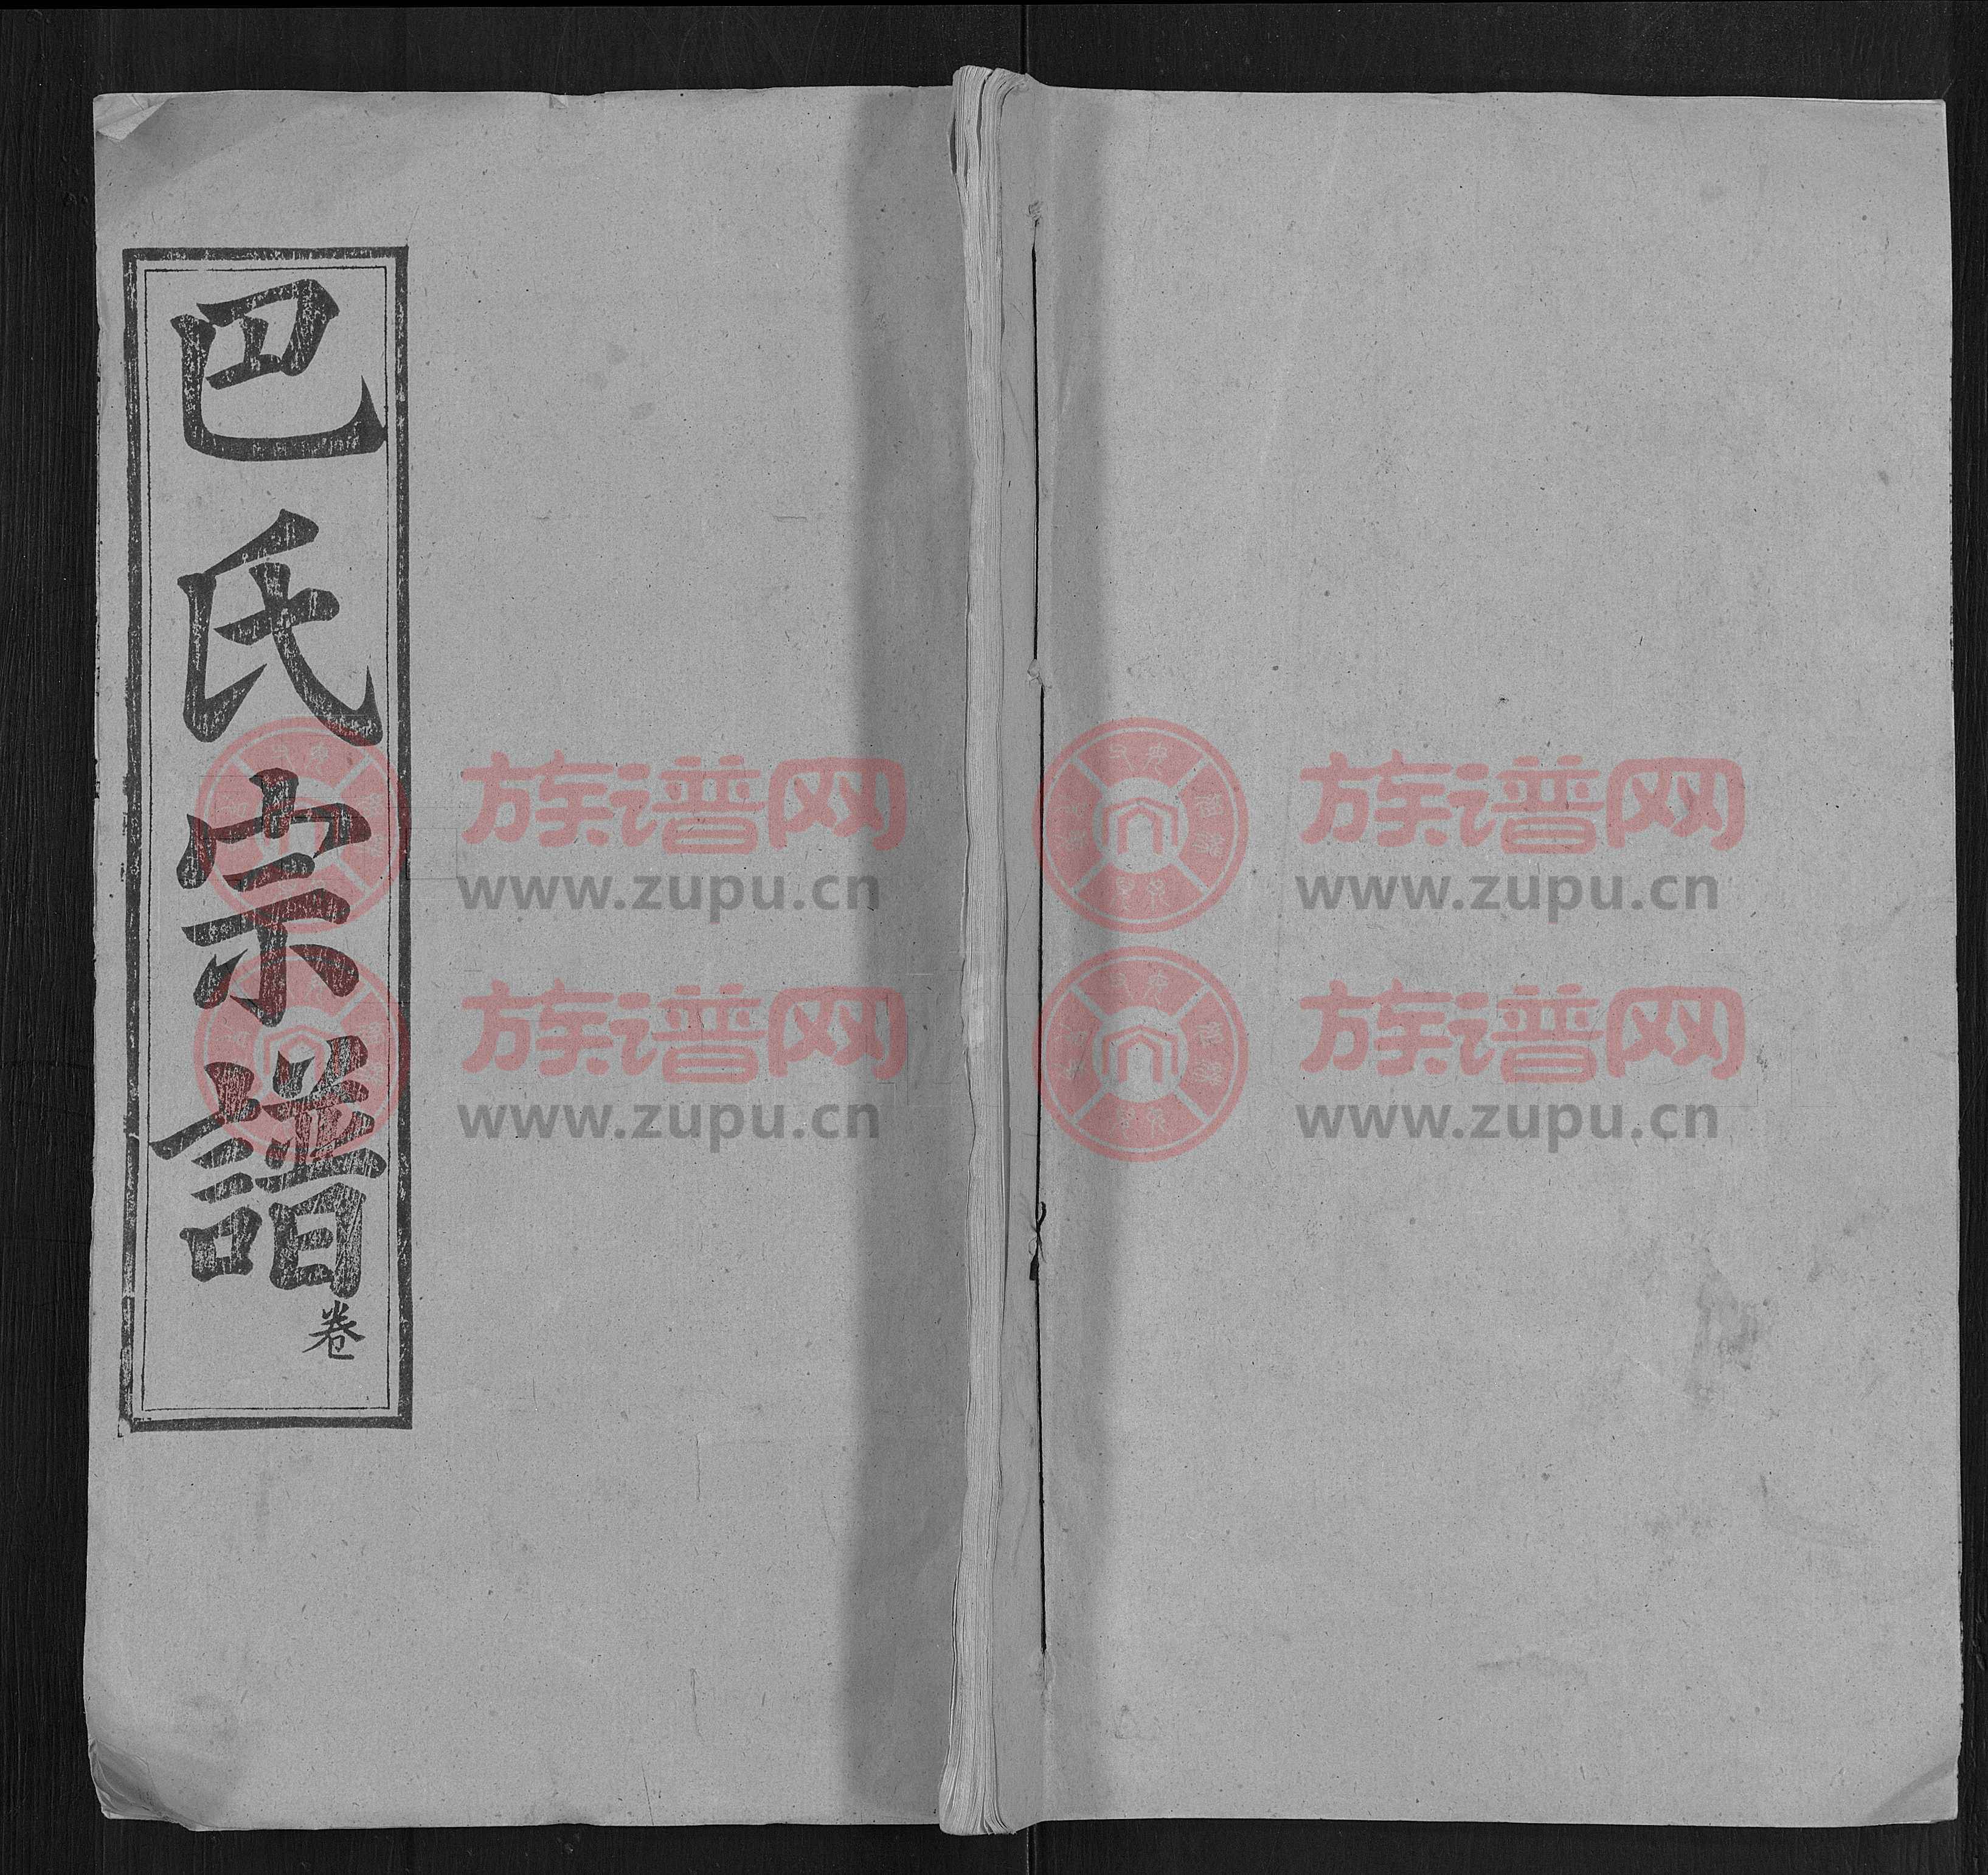 巴氏宗譜
卷
族谱网
www.zupu.cn
族谱网
www.zupu.cn
族谱网
www.zupu.cn
族谱网
www.zupu.cn